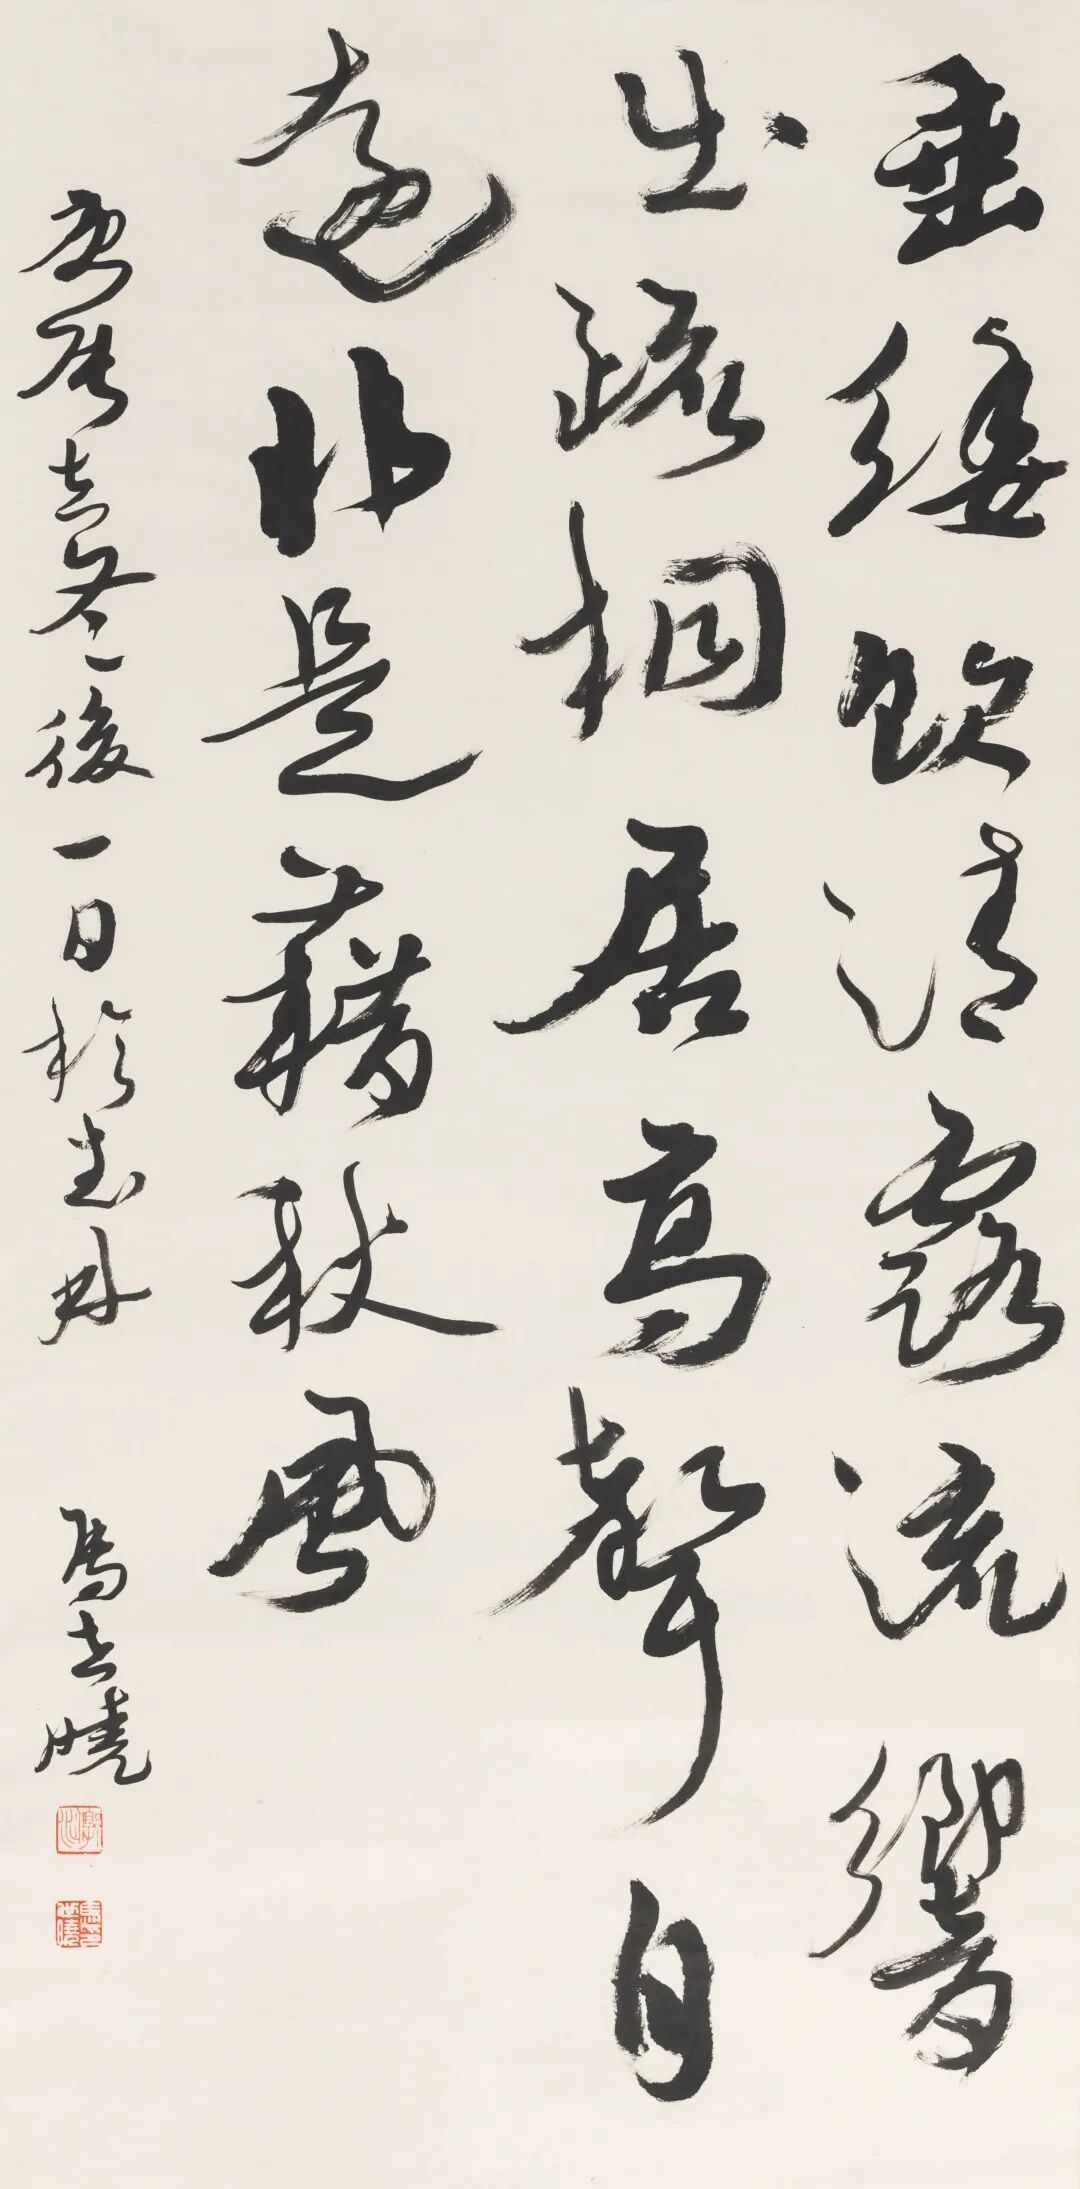 垂緌飲清露流響
出疏桐居高聲自
遠非是藉秋風
庚辰立冬後一日於武林 馬世曉